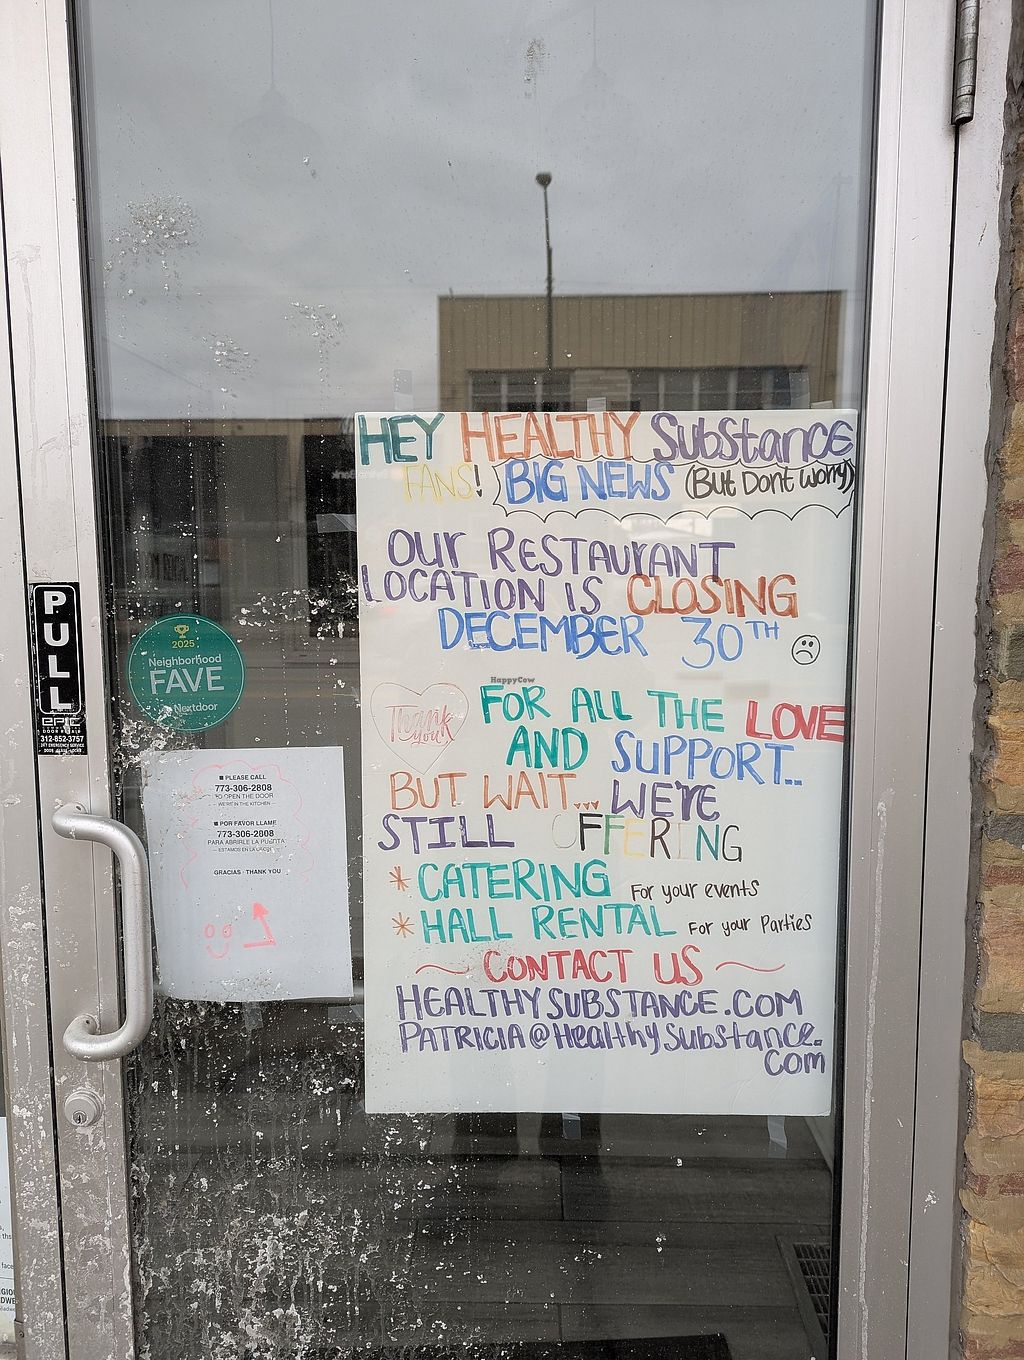 HEY HEALTHY Substance
FANS! BIG NEWS (But Dont worry)
OUr RESTAUrANT
LOCATION IS CLOSING
DECEMBER 30TH
HappyCow
Thank you
FOR ALL THE LOVE
AND SUPPORT..
BUT WAIT... WE'rE
STILL OFFERING
* CATERING For your events
* HALL RENTAL For your Parties
~ CONTACT US ~
HEALTHYSUBSTANCE.COM
PATRICIA@HealthySubstance.
Com
PULL
epic
DOOR REPAIR
312-852-3757
2025
Neighborhood
FAVE
Nextdoor
■ PLEASE CALL
773-306-2808
TO OPEN THE DOOR
- WE'RE IN THE KITCHEN -
■ POR FAVOR LLAME
773-306-2808
PARA ABRIRLE LA PUERTA
- ESTAMOS EN LA COCINA -
GRACIAS · THANK YOU